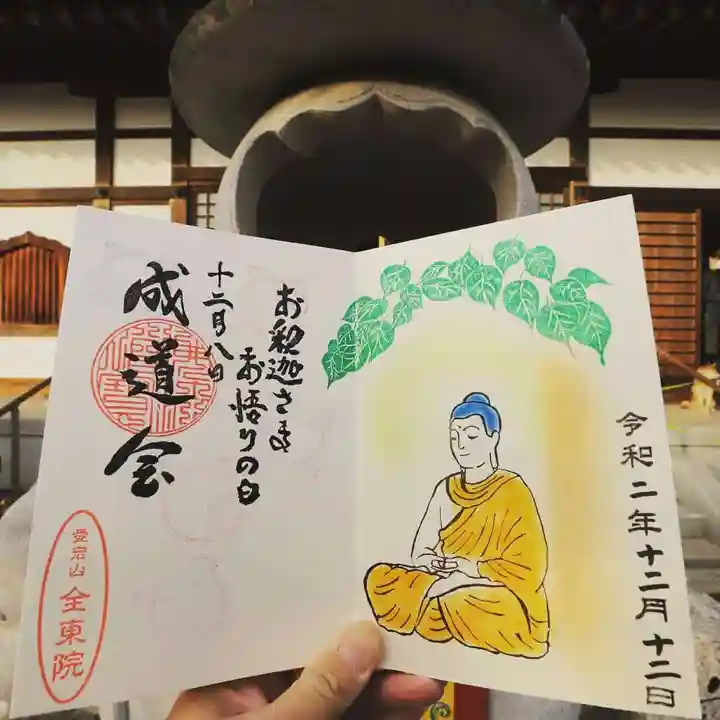 令和二年十二月十二日
お釈迦さま
お悟りの日
十二月八日
成道会
愛宕山
全東院